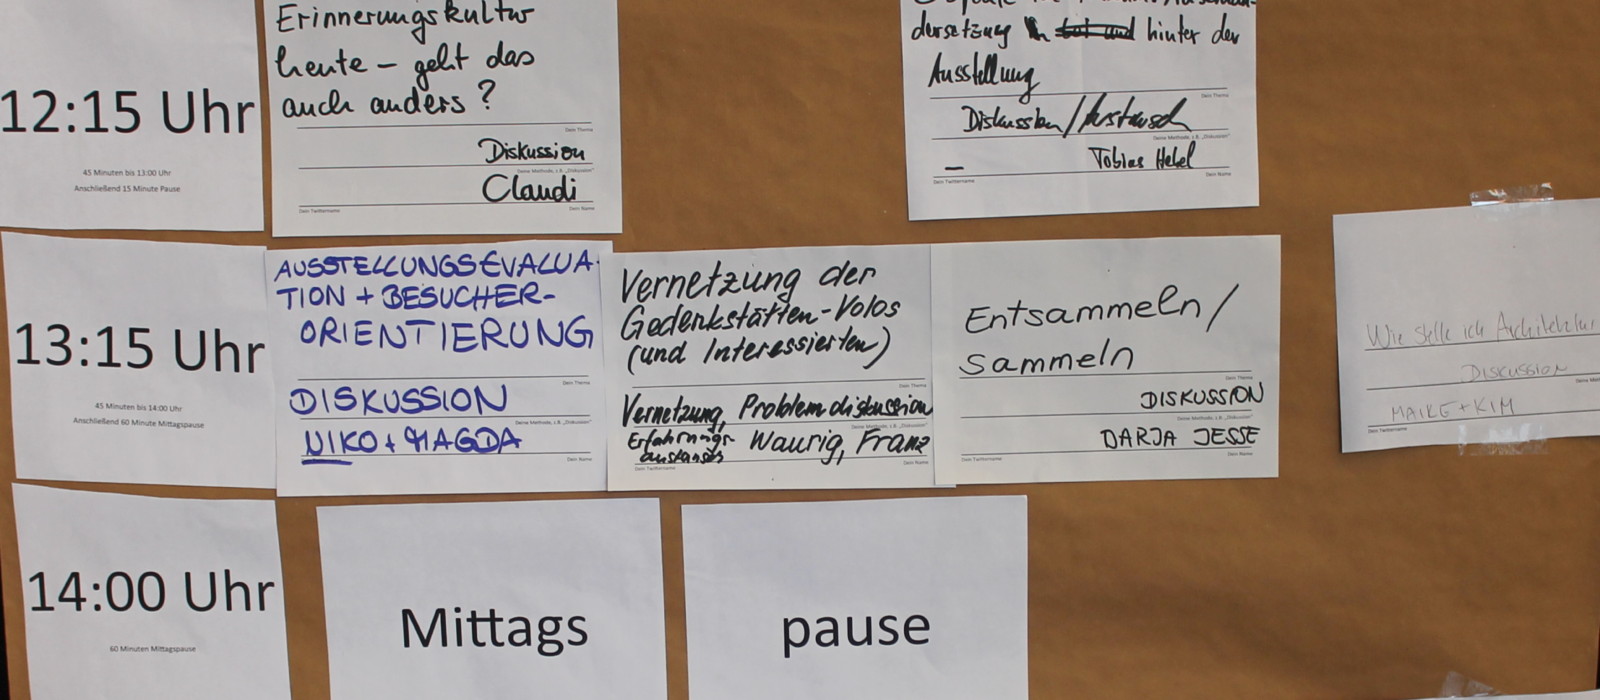 12:15 Uhr
45 Minuten bis 13:00 Uhr
Anschließend 15 Minute Pause
Erinnerungskultur
heute – geht das
auch anders?
Dein Thema
Diskussion
Deine Methode, z.B. „Diskussion"
Claudi
Dein Twittername
Dein Name
dersetzung hinter der
Ausstellung
Dein Thema
Diskussion/Austausch
Deine Methode, z.B. „Diskussion"
– Tobias Hebel
Dein Twittername
Dein Name
13:15 Uhr
45 Minuten bis 14:00 Uhr
Anschließend 60 Minute Mittagspause
AUSSTELLUNGSEVALUA-
TION + BESUCHER-
ORIENTIERUNG
Dein Thema
DISKUSSION
Deine Methode, z.B. „Diskussion"
NIKO + MAGDA
Dein Name
Vernetzung der
Gedenkstätten-Volos
(und Interessierten)
Dein Thema
Vernetzung, Problemdiskussion
Deine Methode, z.B. „Diskussion"
Erfahrungs-
austausch
Waurig, Franz
Dein Twittername
Dein Name
Entsammeln/
sammeln
Dein Thema
DISKUSSION
Deine Methode, z.B. „Diskussion"
DARJA JESSE
Dein Twittername
Dein Name
Wie stelle ich Architektur
DISKUSSION
Deine
MAIKE + KIM
Dein Twittername
14:00 Uhr
60 Minuten Mittagspause
Mittags
pause